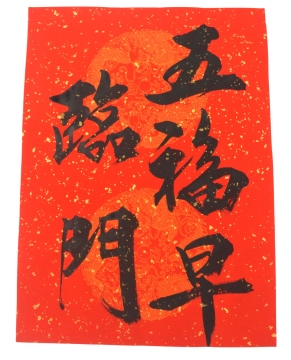 五福早
臨門